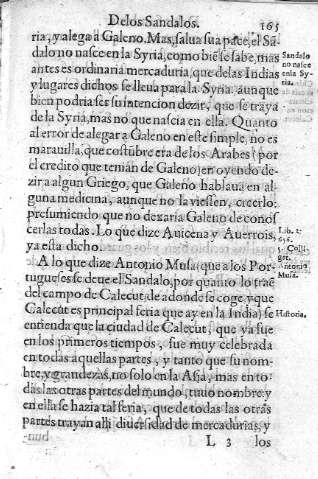 De los Sandalos. 165
ria, y alega à Galeno. Mas, salua sua pace, el Sã-
dalo no nasce en la Syria, como biẽ se sabe, mas
antes es ordinaria mercaduria, que de las Indias
y lugares dichos se lleua para la Syria: aunque
bien podria ser su intencion dezir, que se traya
de la Syria, mas no que nascia en ella. Quanto
al error de alegar a Galeno en este simple, no es
marauilla, que costũbre era de los Arabes (por
el credito que tenian de Galeno) en oyendo de-
zir a algun Griego, que Galeno hablaua en al-
guna medicina, aunque no la viessen, creerlo:
presumiendo que no dexaria Galeno de conos
cerlas todas. Lo que dize Auicena y Auerrois,
ya esta dicho.
A lo que dize Antonio Musa (que a los Por-
tugueses se deue el Sandalo, por quanto lo traẽ
del campo de Calecut, de adonde se coge, y que
Calecut es principal feria que ay en la India) se
entienda que la ciudad de Calecut, que ya fue
en los primeros tiempos, fue muy celebrada
en todas aquellas partes, y tanto que su nom-
bre, y grandezas, no solo en la Asia, mas en to-
das las otras partes del mundo, tuuo nombre, y
en ella se hazia tal feria, que de todas las otras
partes trayan alli diuersidad de mercadurias, y
L 3 los
Sandalo
no nasce
en la Sy-
ria.
Lib. 2.
656.
5. Colli-
get.
Antonio
Musa.
Historia.